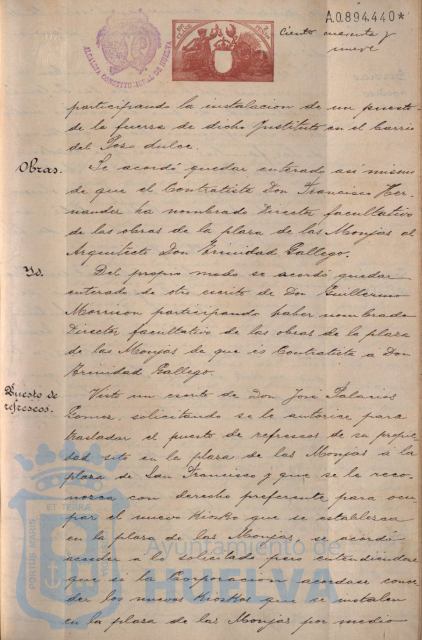 A.0.894.440*
Ciento cuarenta y
nueve
ALCALDIA CONSTITUCIONAL DE HUELVA
participando la instalacion de un puesto
de la fuerza de dicho Instituto en el barrio
del Pozo dulce.
Obras.
Se acordó quedar enterado asi mismo
de que el Contratista Don Francisco Her-
nandez ha nombrado Director facultativo
de las obras de la plaza de las Monjas al
Arquitecto Don Trinidad Gallego.
Yd.
Del propio modo se acordó quedar
enterado de otro escrito de Don Guillermo
Morrison participando haber nombrado
Director facultativo de las obras de la plaza
de las Monjas de que es Contratista a Don
Trinidad Gallego.
Puesto de
refrescos.
Visto un escrito de Don José Palacios
Gomez, solicitando se le autorice para
trasladar el puesto de refrescos de su propie
dad sito en la plaza de las Monjas á la
plaza de San Francisco y que se le reco-
nozca con derecho preferente para ocu-
par el nuevo Kiosko que se establezca
en la plaza de las Monjas, se acordó
acceder a lo solicitado pero entendiendose
que si la Corporacion acordase conce
der los nuevos Kioskos que se instalen
en la plaza de las Monjas por medio
PORTUS MARIS
ET TERRÆ
Ayuntamiento de
HUELVA